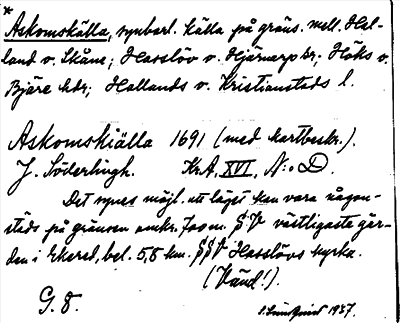 *
Askomskälla, synbarl. källa på gräns. mell. Hal-
land v. Skåne; Hasslöv v. Hjärnarp kr; Höks v.
Bjäre hdr; Hallands v. Kristianstads l.
Askomskiälla 1691 (med kartbeskr.).
J. Söderlingh. KrA, XVI, N:o D.
Det synes möjl. att läget kan vara någon-
städs på gränsen omkr. 700 m. SV västligaste går-
den i Ekered, bel. 5,8 km. SSV Hasslövs kyrka.
(Vänd!).
G. 8.
1927.